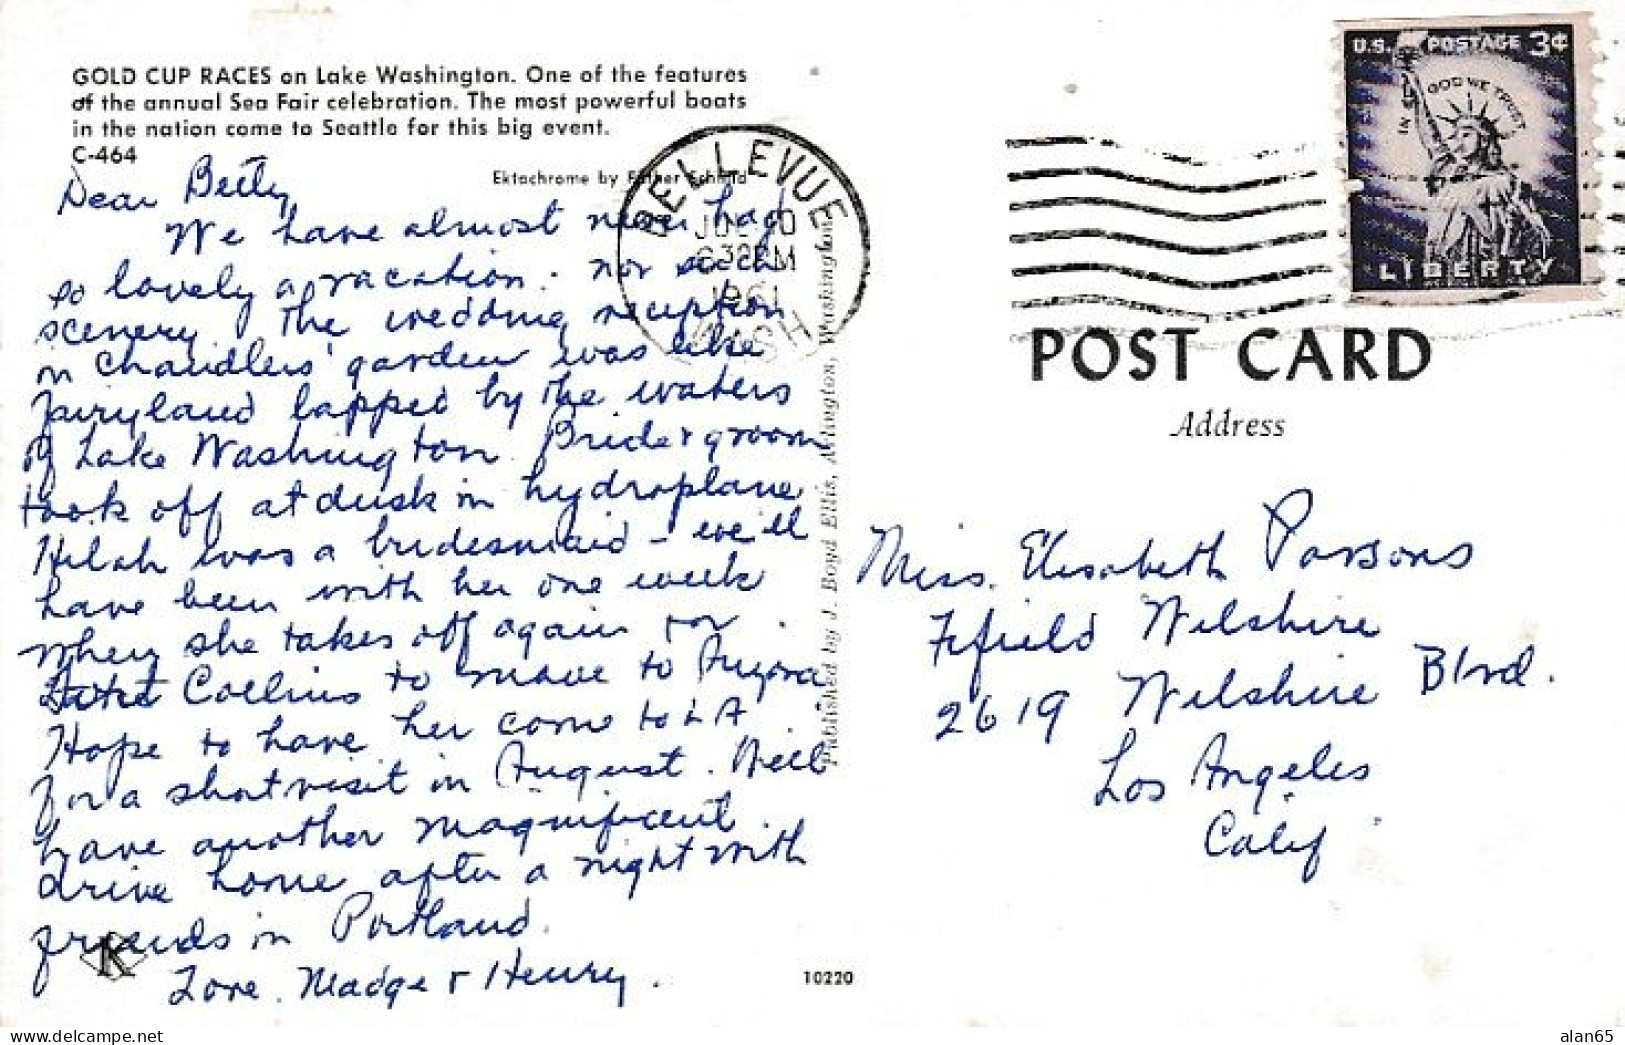 GOLD CUP RACES on Lake Washington. One of the features
of the annual Sea Fair celebration. The most powerful boats
in the nation come to Seattle for this big event.
C-464
Ektachrome by Father Schmid
Dear Betty
We have almost never had
so lovely a vacation. nor such
scenery. The wedding reception
in Chandlers' garden was like
fairyland lapped by the waters
of Lake Washington. Bride & groom
took off at dusk in hydroplane
was a bridesmaid - we'll
have been with her one week
when she takes off again for
Collins to move to
Hope to have her come to LA
for a short visit in August. Will
have another magnificent
drive home after a night with
friends in Portland.
Love. Madge & Henry.
K
Published by J. Boyd Ellis, Arlington, Washington
10220
BELLEVUE
630 PM
1961
WASH
U.S. POSTAGE 3¢
IN GOD WE TRUST
LIBERTY
POST CARD
Address
Miss. Elisabeth Parsons
Fifield Wilshire
2619 Wilshire Blvd.
Los Angeles
Calif
alan65